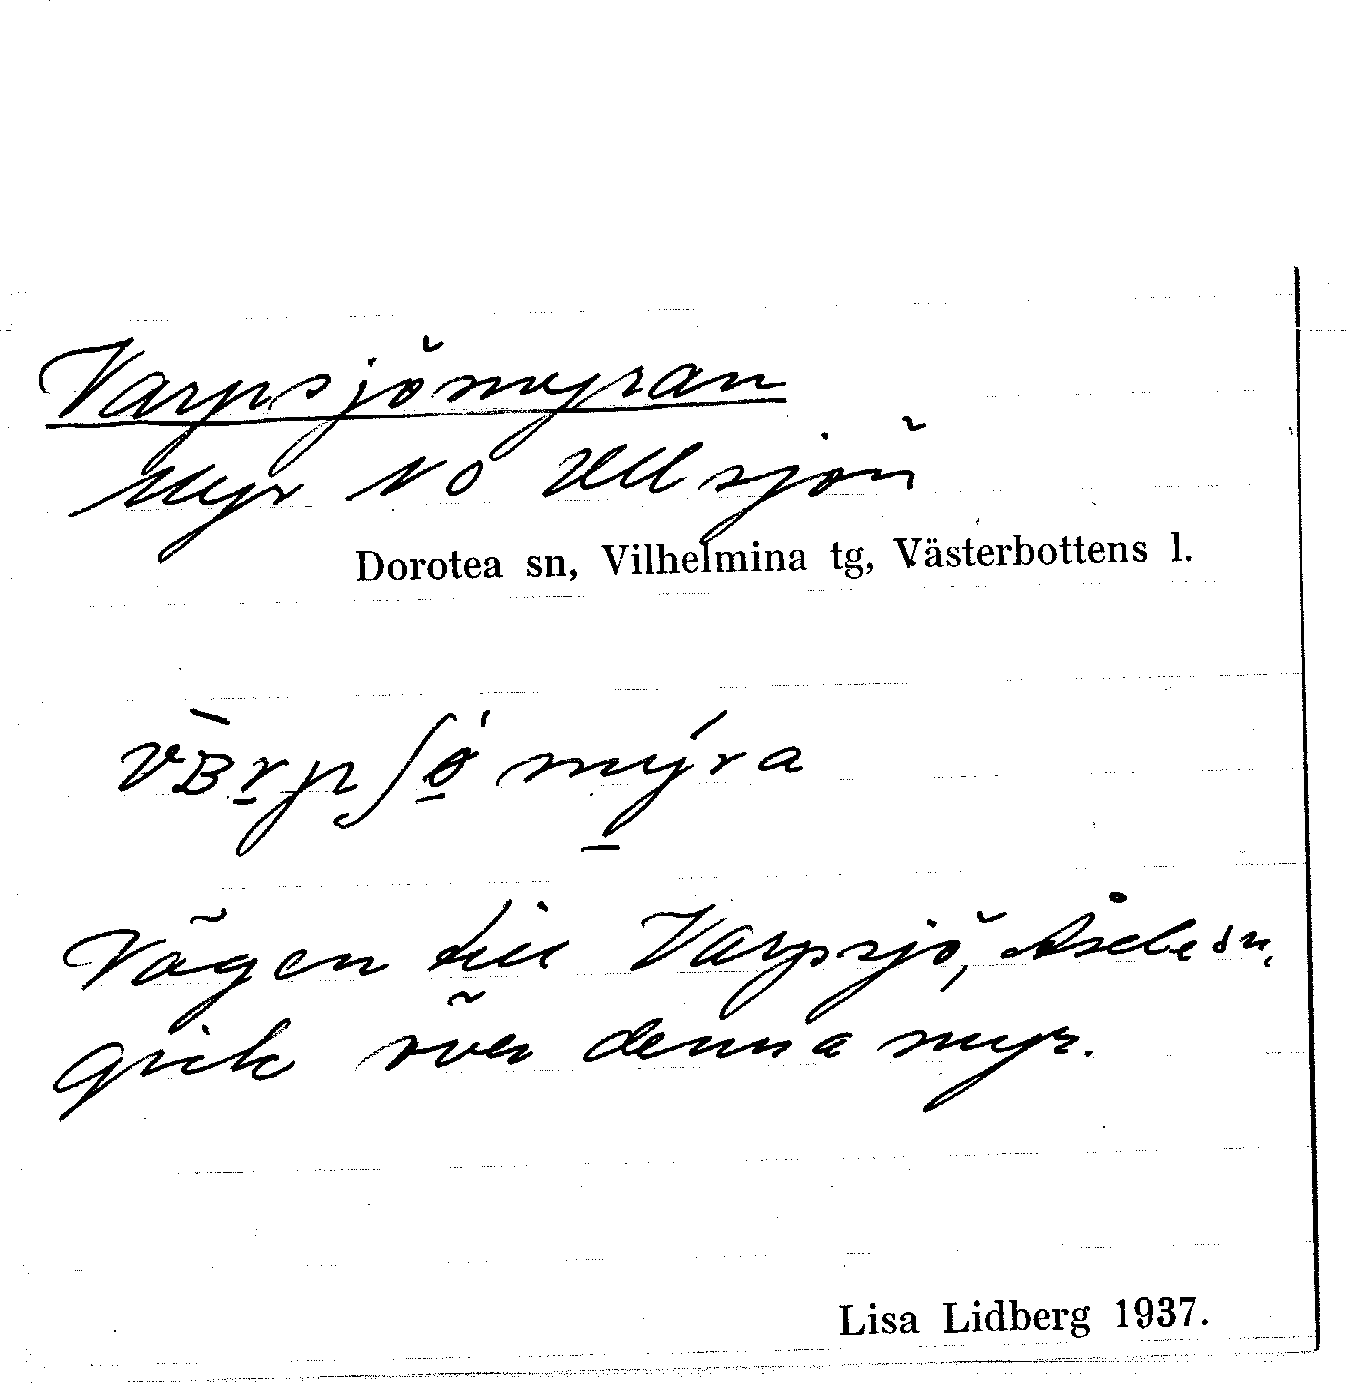 Varpsjömyran
Myr NO Ullsjön
Dorotea sn, Vilhelmina tg, Västerbottens l.
vʙ̀r̲pʃǿ̲mý̲ra
Vägen till Varpsjö, Åsele sn,
gick över denna myr.
Lisa Lidberg 1937.